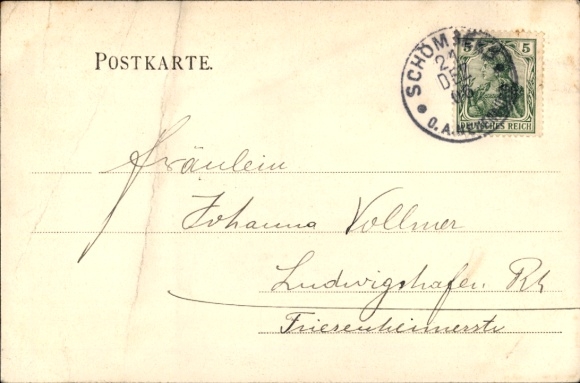 POSTKARTE.
5 5
SCHÖMBERG
21
DEZ
O.A.
DEUTSCHES REICH
Fräulein
Johanna Vollmer
Ludwigshafen Rh
Friesenheimerstr